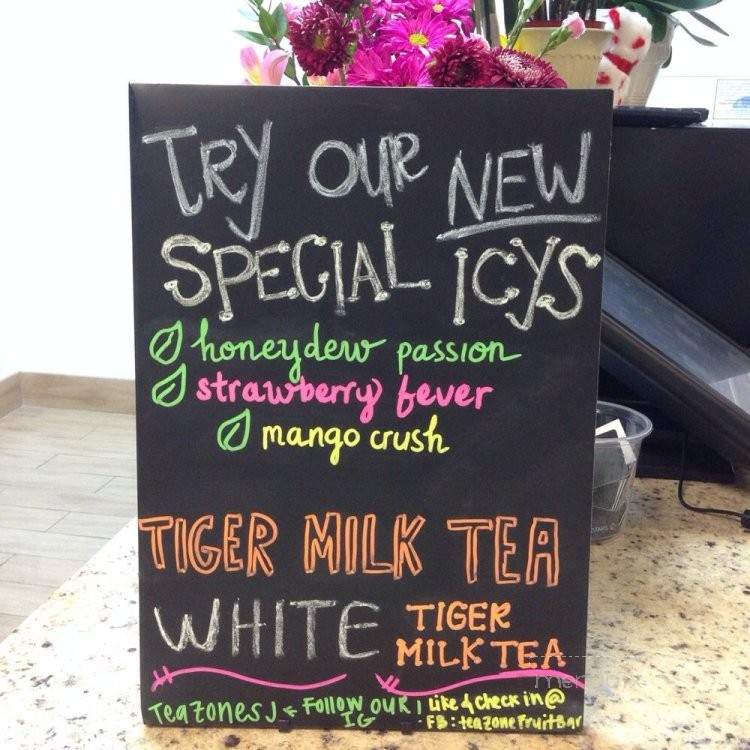 TRY OUR NEW
SPECIAL ICYS
honeydew passion
strawberry fever
mango crush
TIGER MILK TEA
WHITE TIGER MILK TEA
TeazoneSJ Follow our IG
like & check in @
FB: teazonefruitBar